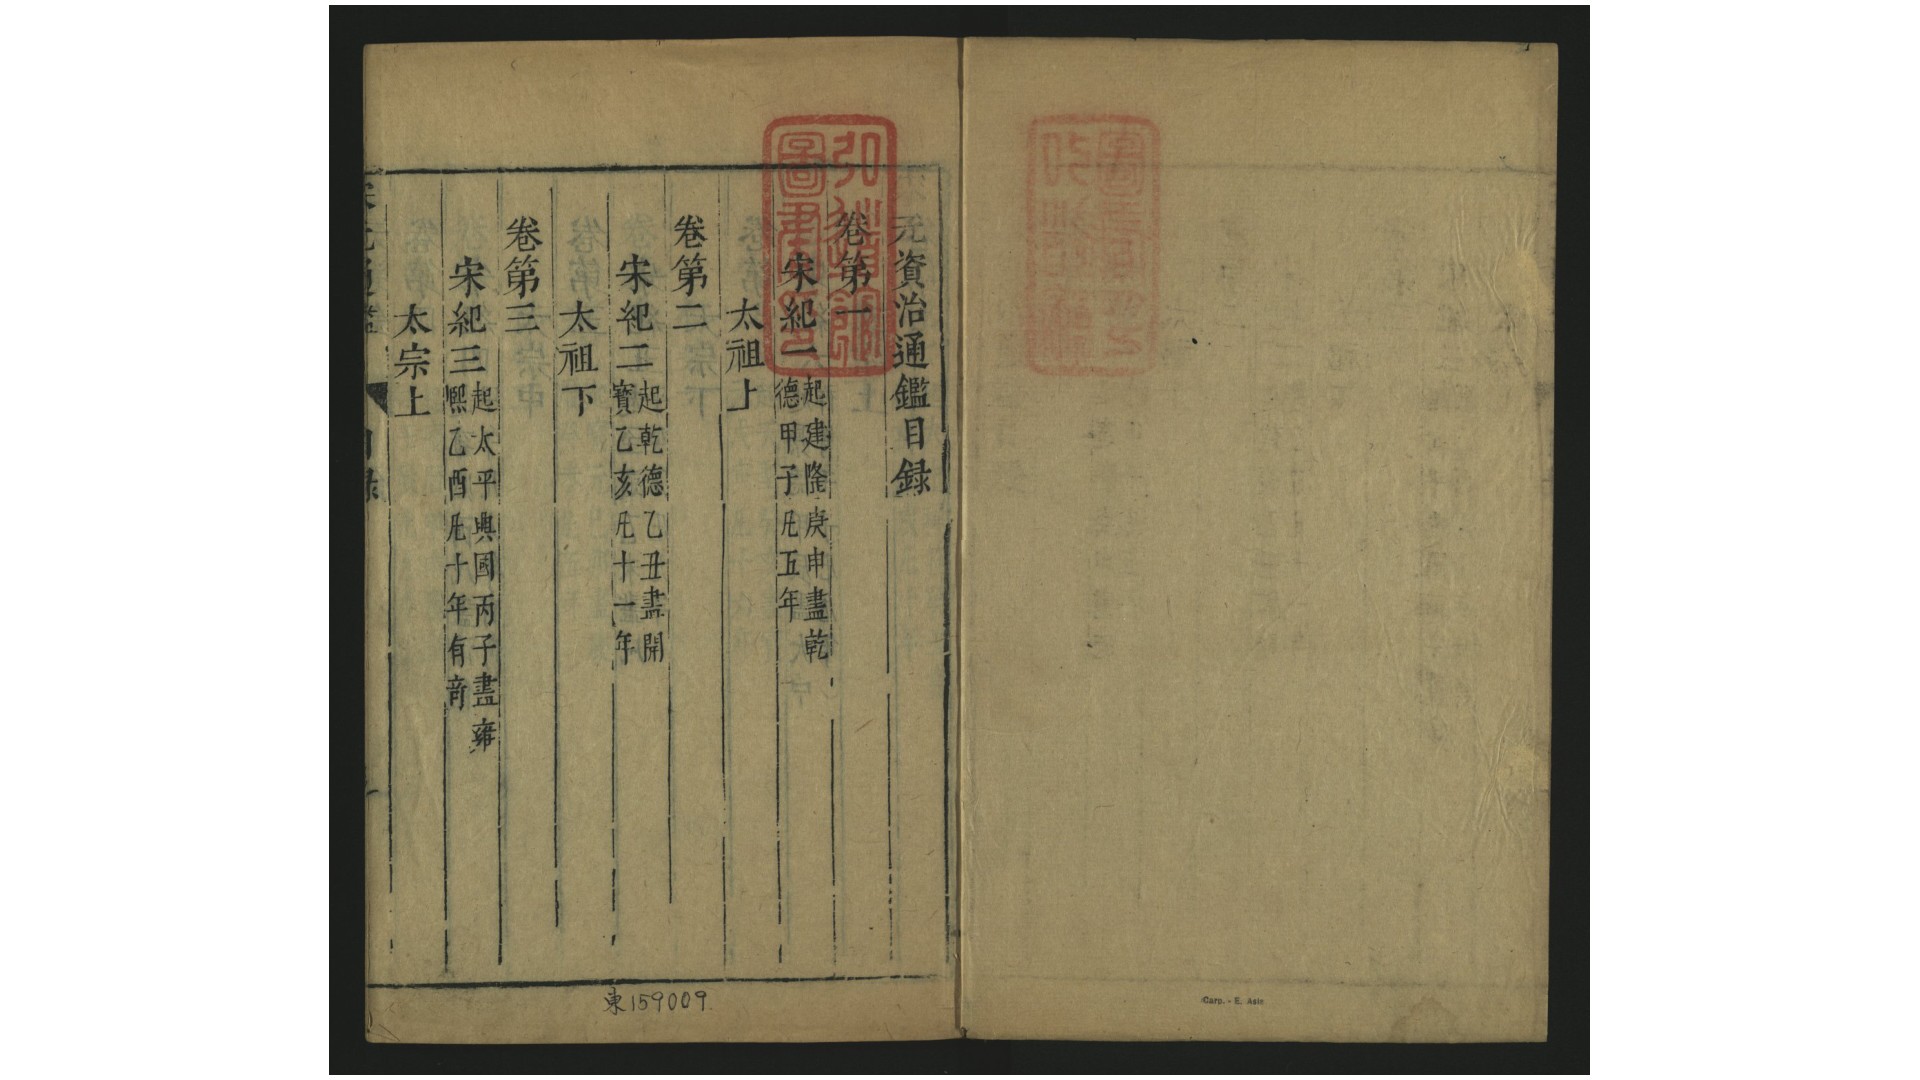 元資治通鑑目録
卷第一
宋紀一 起建隆庚申盡乾
德甲子凡五年
太祖上
卷第二
宋紀二 起乾德乙丑盡開
寶乙亥凡十一年
太祖下
卷第三
宋紀三 起太平興國丙子盡雍
熙乙酉凡十年有奇
太宗上
東159009
Carp. - E. Asie